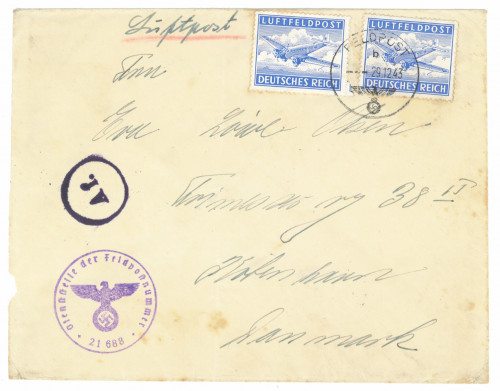 Luftpost
LUFTFELDPOST
DEUTSCHES REICH
LUFTFELDPOST
DEUTSCHES REICH
FELDPOST
b
29.12.43
Eva
Olsen
38 II
København
Danmark
Dienststelle der Feldpostnummer
21 688